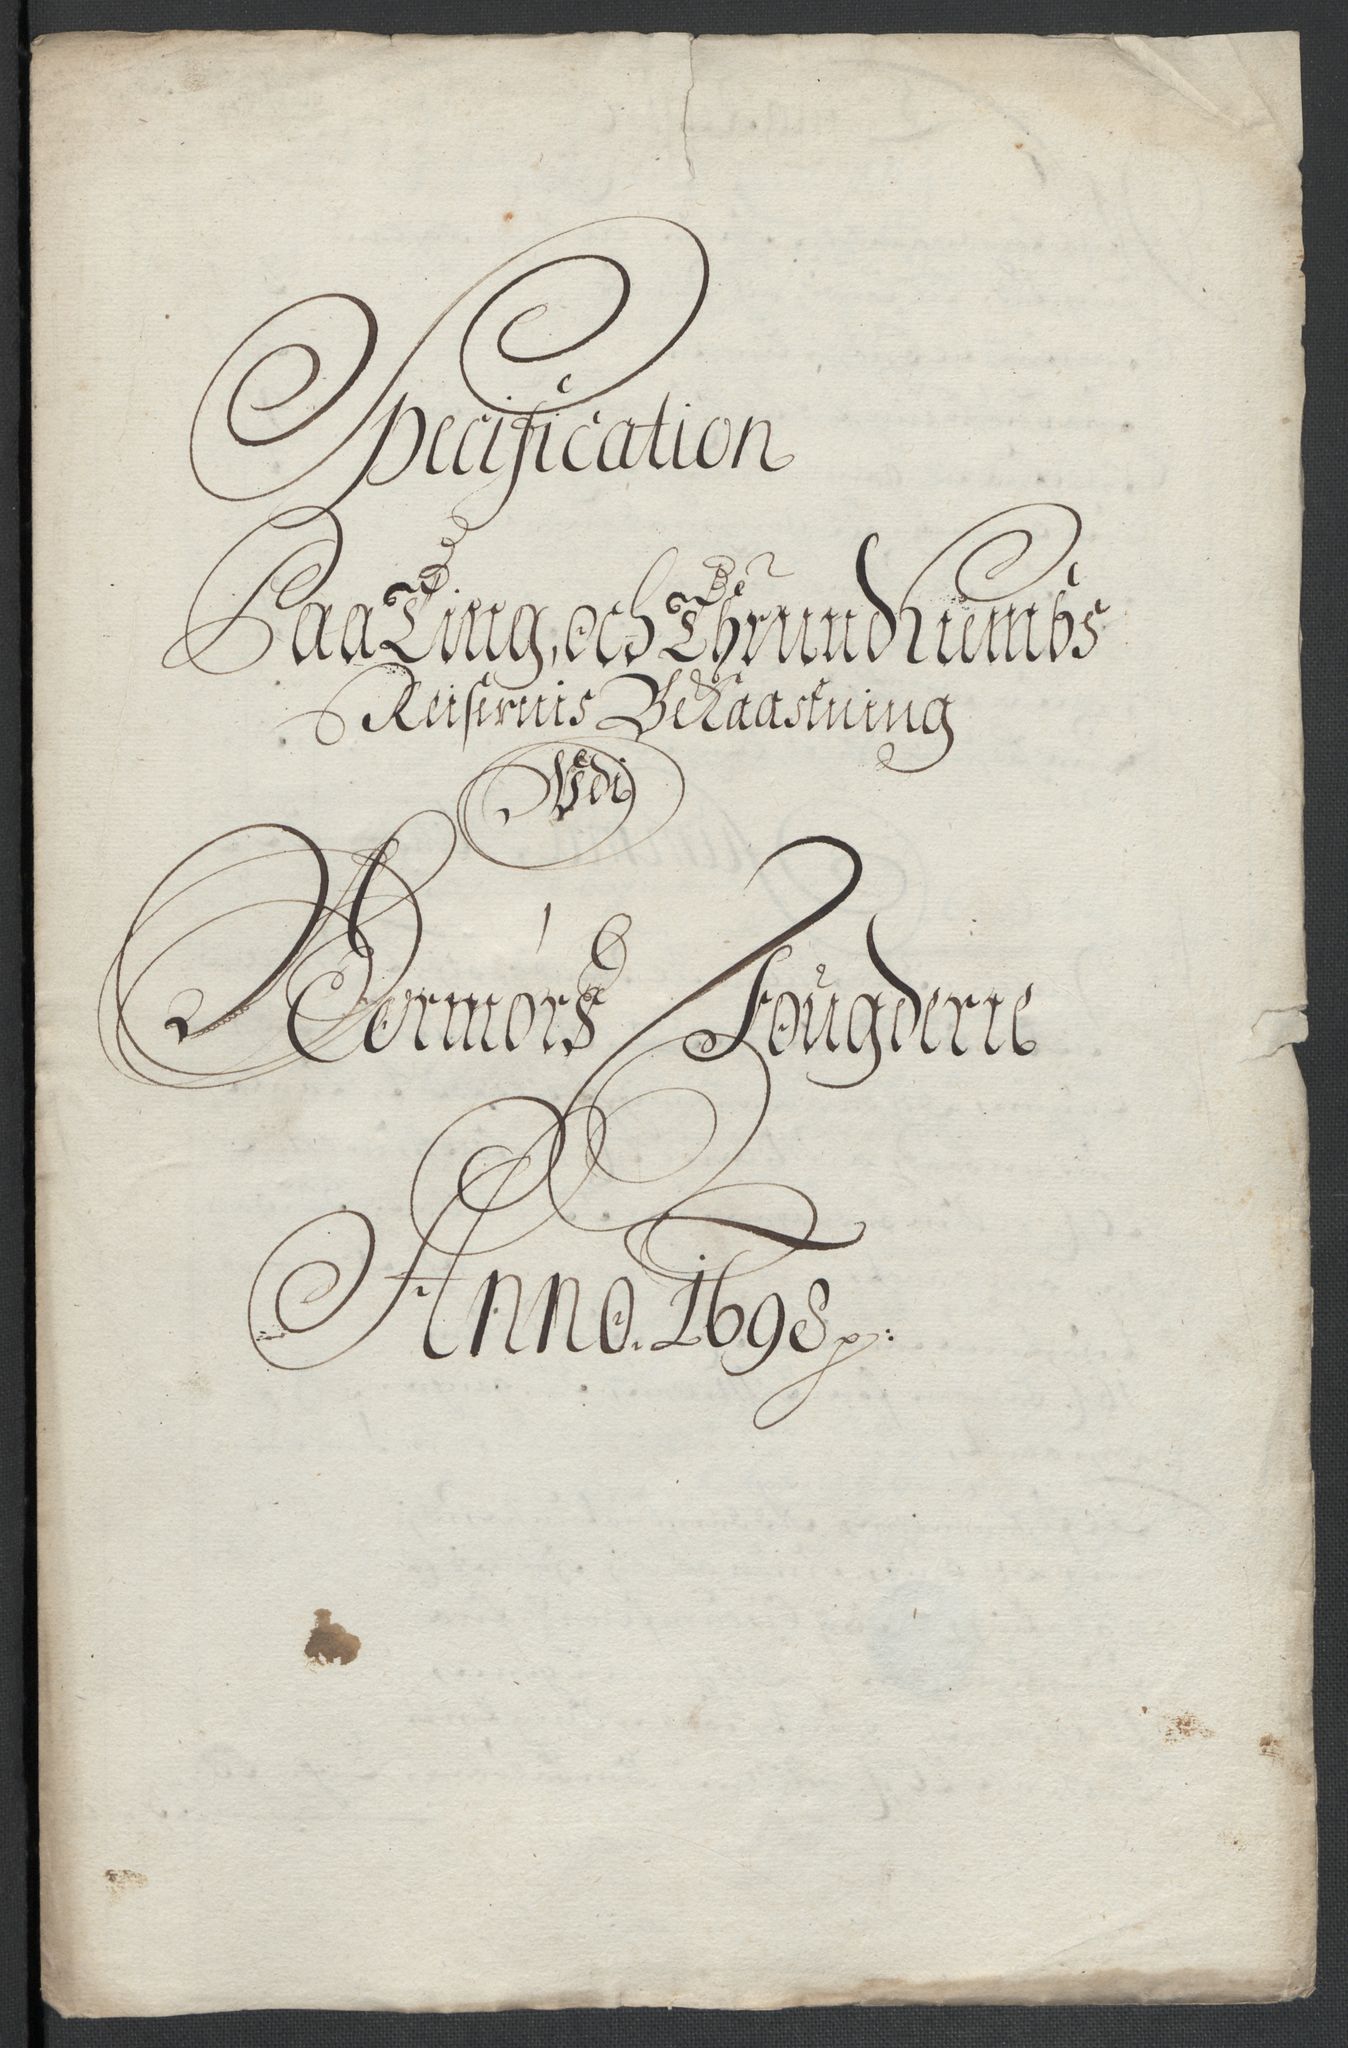 Specification
Paa Ting, och Thrundhiembs
Reisernis Bekaastning
Udi
Rormørs Fougderie
Anno. 1698